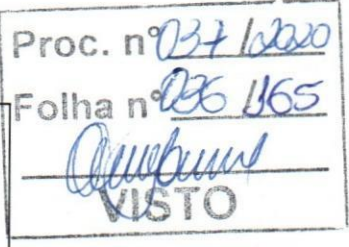 Proc. nº 037 / 2020
Folha nº 036 / 165
VISTO